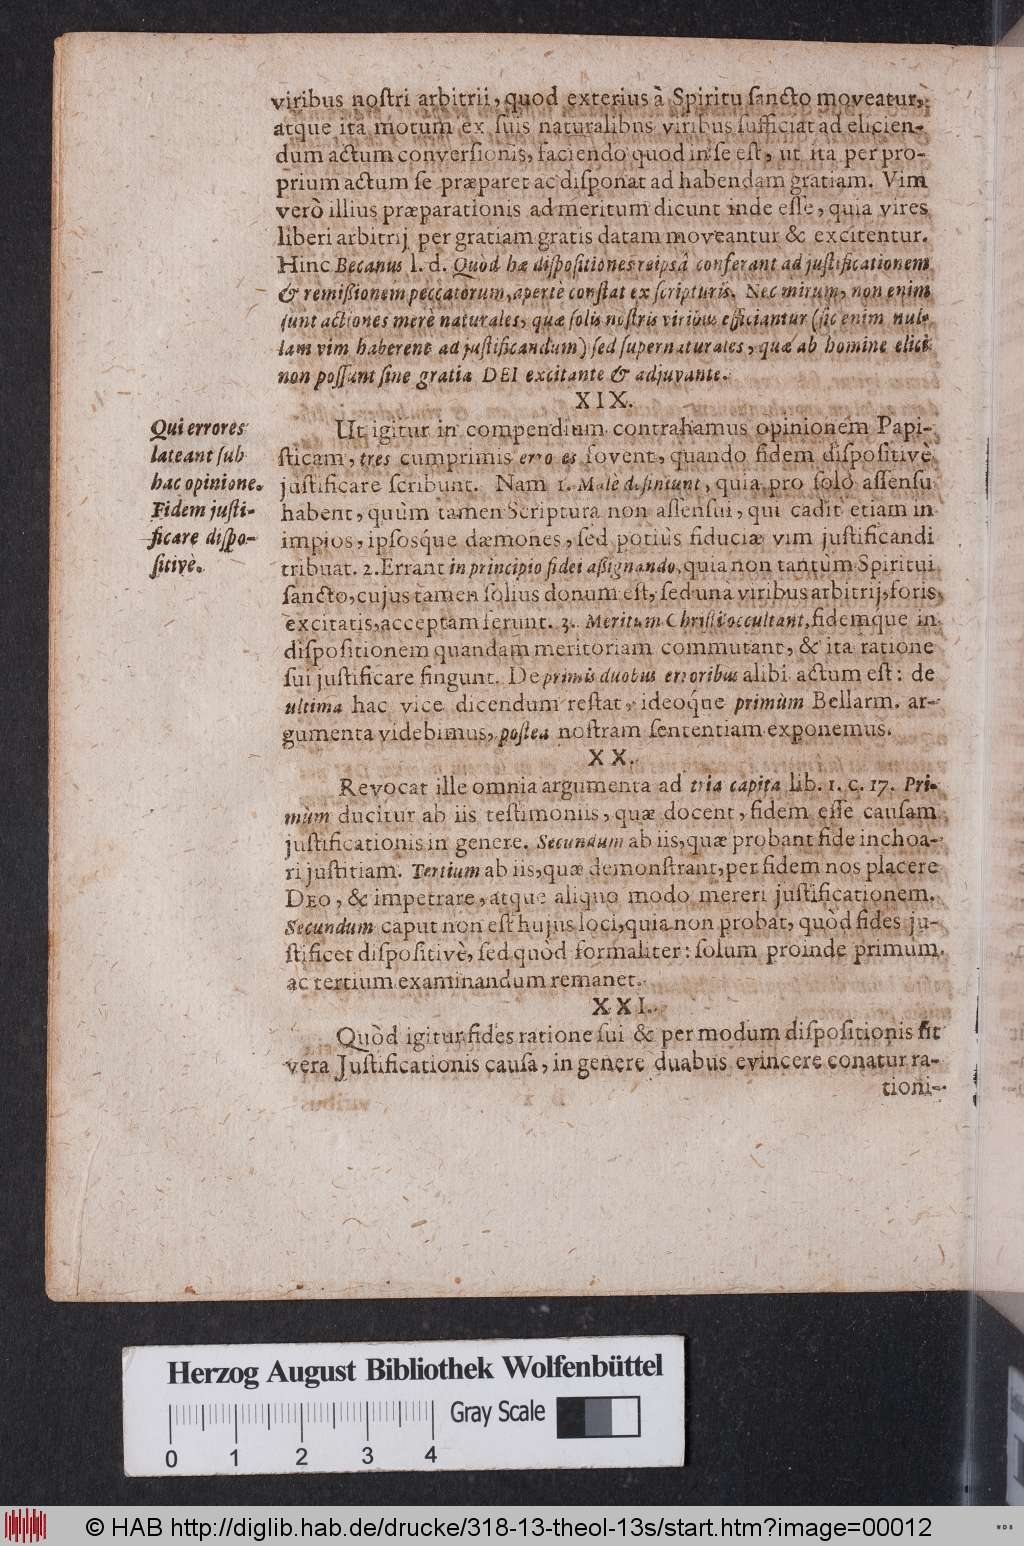 viribus noſtri arbitrii, quod exterius à Spiritu ſancto moveatur,
atque ita motum ex ſuis naturalibus viribus ſufficiat ad elicien-
dum actum converſionis, faciendo quod in ſe eſt, ut ita per pro-
prium actum ſe præparet ac diſponat ad habendam gratiam. Vim
verò illius præparationis ad meritum dicunt inde eſſe, quia vires
liberi arbitrij per gratiam gratis datam moveantur & excitentur.
Hinc Becanus l. d. Quòd hæ diſpoſitiones reipsâ conferant ad juſtificationem
& remißionem peccatorum, apertè conſtat ex ſcripturis. Nec mirum, non enim
ſunt actiones merè naturales, quæ ſolis noſtris viribus efficiantur (ſic enim nul-
lam vim haberent ad juſtificandum) ſed ſupernaturales, quæ ab homine elici
non poſſunt ſine gratia DEI excitante & adjuvante.
XIX.
Qui errores
lateant ſub
hac opinione.
Fidem juſti-
ficare diſpo-
ſitivè.
Ut igitur in compendium contrahamus opinionem Papi-
ſticam, tres cumprimis errores fovent, quando fidem diſpoſitivè
juſtificare ſcribunt. Nam 1. Malè definiunt, quia pro ſolo aſſenſu
habent, quùm tamen Scriptura non aſſenſui, qui cadit etiam in
impios, ipſosque dæmones, ſed potiùs fiduciæ vim juſtificandi
tribuat. 2. Errant in principio fidei aßignando, quia non tantùm Spiritui
ſancto, cujus tamen ſolius donum eſt, ſed una viribus arbitrij, foris
excitatis, acceptam ferunt. 3. Meritum Chriſti occultant, fidemque in
diſpoſitionem quandam meritoriam commutant, & ita ratione
ſui juſtificare fingunt. De primis duobus erroribus alibi actum eſt: de
ultima hac vice dicendum reſtat, ideoq́ue primùm Bellarm. ar-
gumenta videbimus, poſtea noſtram ſententiam exponemus.
XX.
Revocat ille omnia argumenta ad tria capita lib. 1. c. 17. Pri-
mùm ducitur ab iis teſtimoniis, quæ docent, fidem eſſe cauſam
juſtificationis in genere. Secundum ab iis, quæ probant fide inchoa-
ri juſtitiam. Tertium ab iis, quæ demonſtrant, per fidem nos placere
DEO, & impetrare, atque aliquo modo mereri juſtificationem.
Secundum caput non eſt hujus loci, quia non probat, quòd fides ju-
ſtificet diſpoſitivè, ſed quòd formaliter: ſolum proinde primum
ac tertium examinandum remanet.
XXI.
Quòd igitur fides ratione ſui & per modum diſpoſitionis ſit
vera Juſtificationis cauſa, in genere duabus evincere conatur ra-
tioni-
Herzog August Bibliothek Wolfenbüttel
Gray Scale
0 1 2 3 4
© HAB http://diglib.hab.de/drucke/318-13-theol-13s/start.htm?image=00012